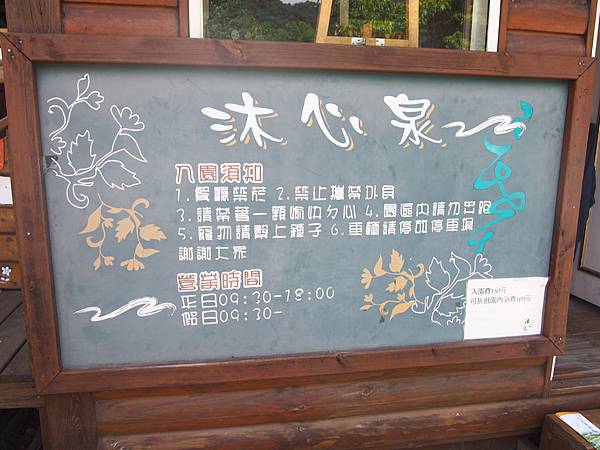 沐心泉
入園須知
1.餐廳禁菸 2.禁止攜帶外食
3.請帶著一顆愉快的心 4.園區內請勿奔跑
5.寵物請繫上鍊子 6.車輛請停放停車場
謝謝大家
營業時間
平日09:30-18:00
假日09:30-
入園費150元
可折抵園內消費100元